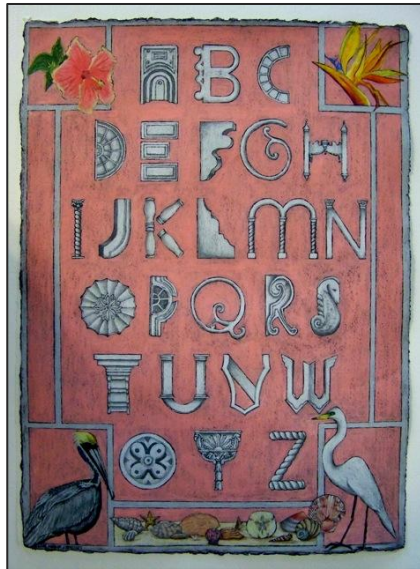 ABC
DEFGH
IJKLMN
OPQRS
TUVW
XYZ